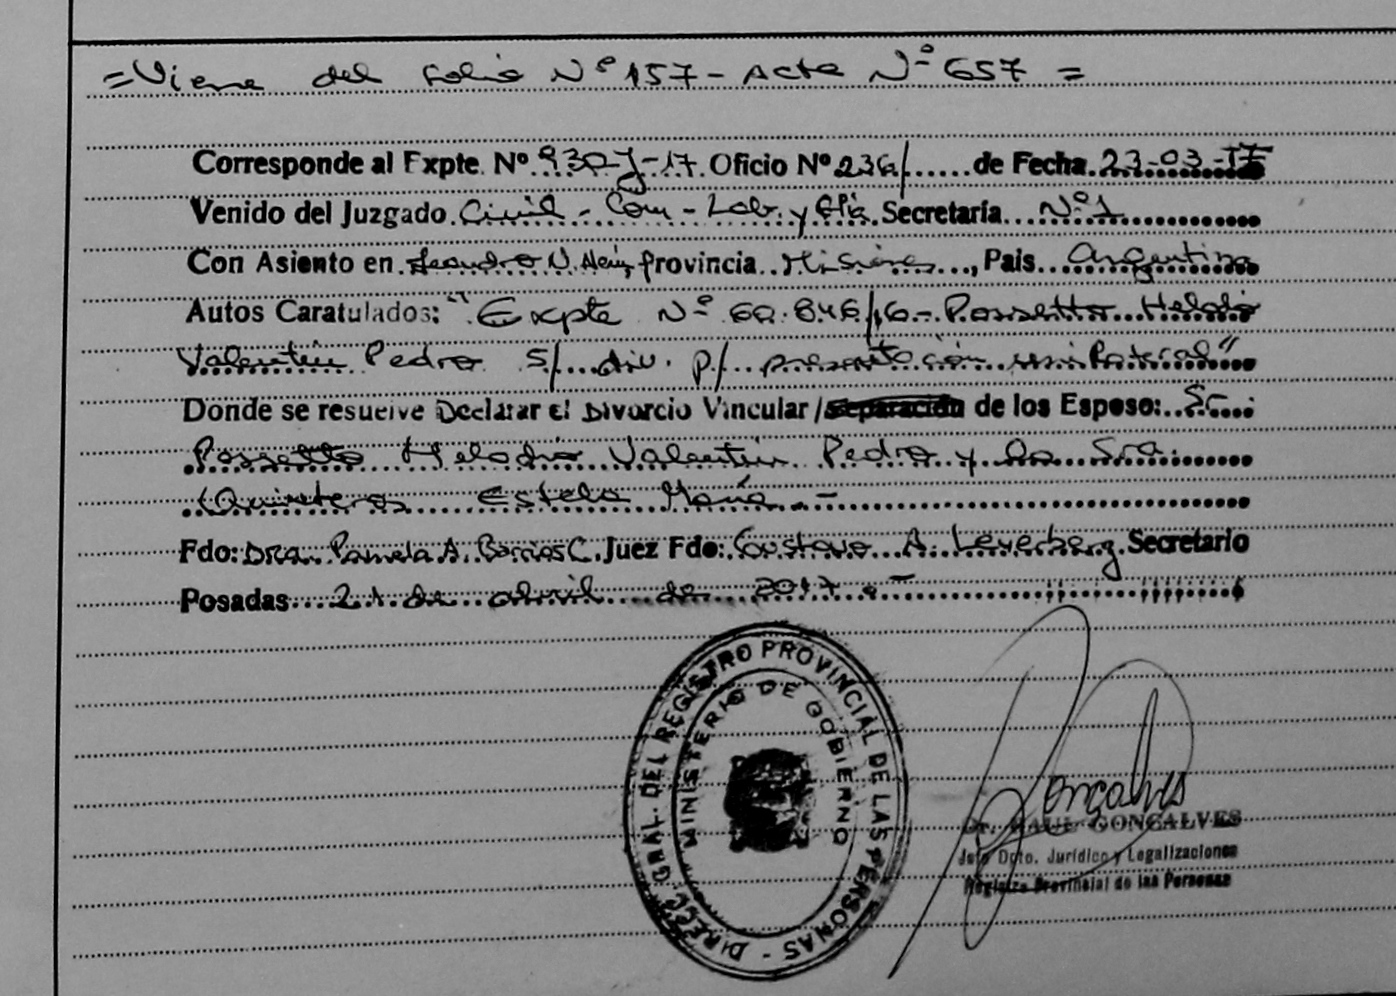 =Viene del folio Nº 157 - Acta Nº 657 =
Corresponde al Expte. Nº 930-J-17. Oficio Nº 236/...... de Fecha 23-03-17
Venido del Juzgado Civil - Com - Lab. y flia. Secretaría... Nº1
Con Asiento en Leandro N. Alem provincia.. Misiones..., Pais... Argentina
Autos Caratulados: "Expte Nº 60.846/16 - Possetto Helodio
Valentín Pedro S/ div. p/ presentación unilateral"
Donde se resuelve Declarar El Divorcio Vincular/Separación de los Esposo:.. Sr....
Possetto Helodio Valentín Pedro y la Sra.
Quinteros Estela María.-
Fdo: Dra. Pamela A. Barrios C. Juez Fdo: Gustavo A. Leverberg. Secretario
Posadas... 21 de abril de 2017.-
DIREC. GRAL. DEL REGISTRO PROVINCIAL DE LAS PERSONAS -
MINISTERIO DE GOBIERNO
Gonçalves
Dr. RAUL GONCALVES
Jefe Dpto. Jurídico y Legalizaciones
Registro Provincial de las Personas